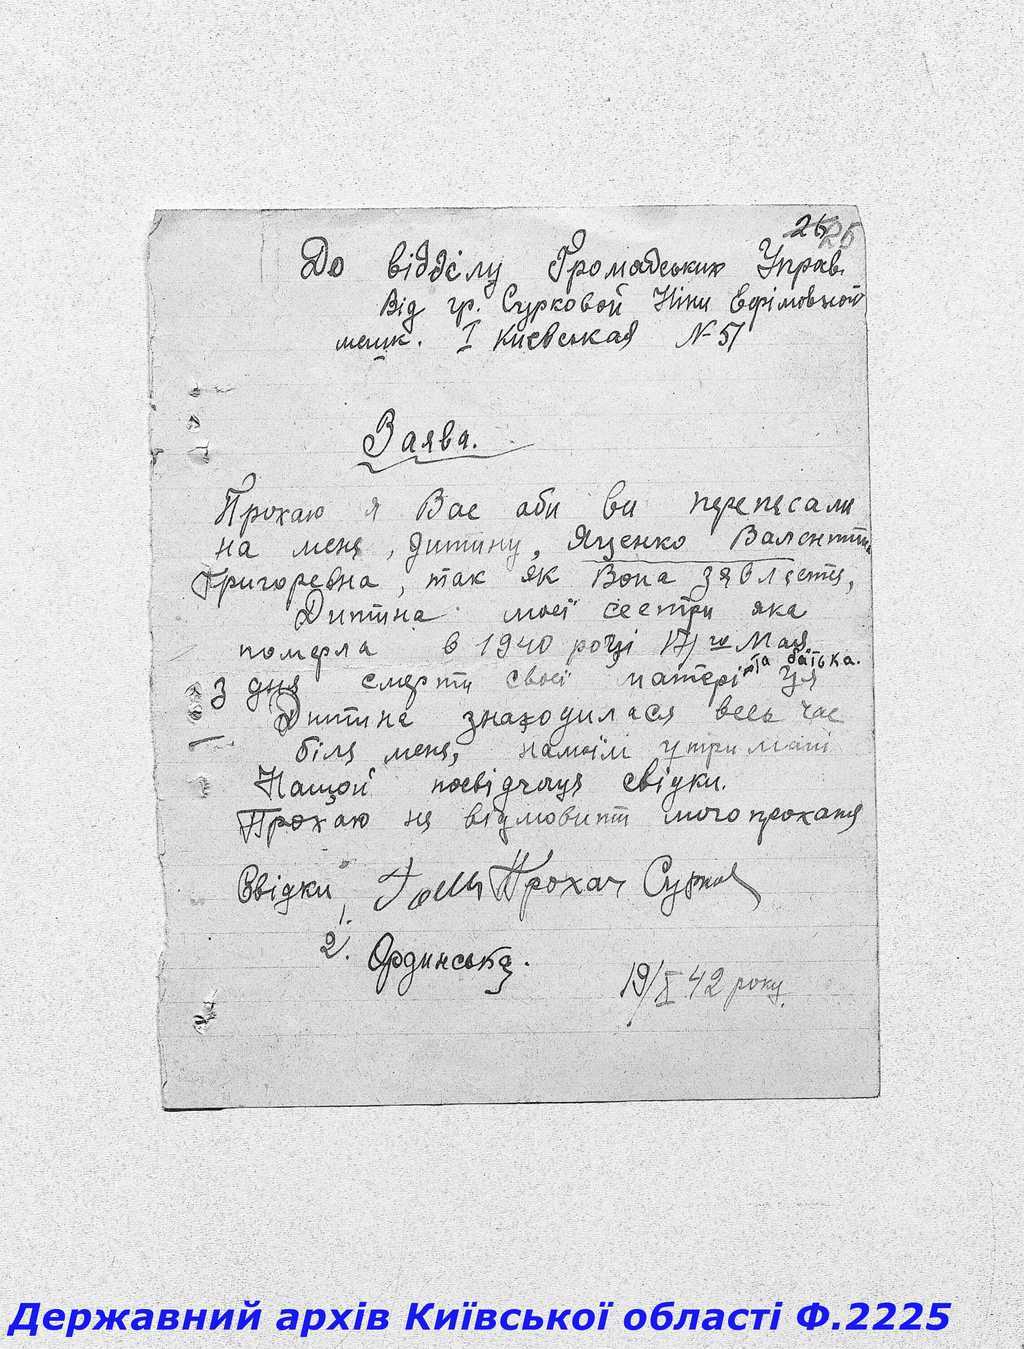 26 25
До відділу Громадських Управ.
Від гр. Сурковой Ніни Ефімовной
мешк. I Києвськая N-51
Заява.
Прохаю я Вас аби ви переписали
на меня, дитину, Яценко Валентина
Григоревна, так як Вона зявляетця,
Дитина моєї сестри яка
померла в 1940 році 17/го Мая
та батька.
З дня смерти своєї матері ця
Дитина знаходилася весь час
біля меня, намоїм утримані
Нащой посвідчаця свідки.
Прохаю не відмовить мого проханя
Свідки Прохач Сурков
1.
2. Ординська.
19/X 42 року.
Державний архів Київської області Ф.2225